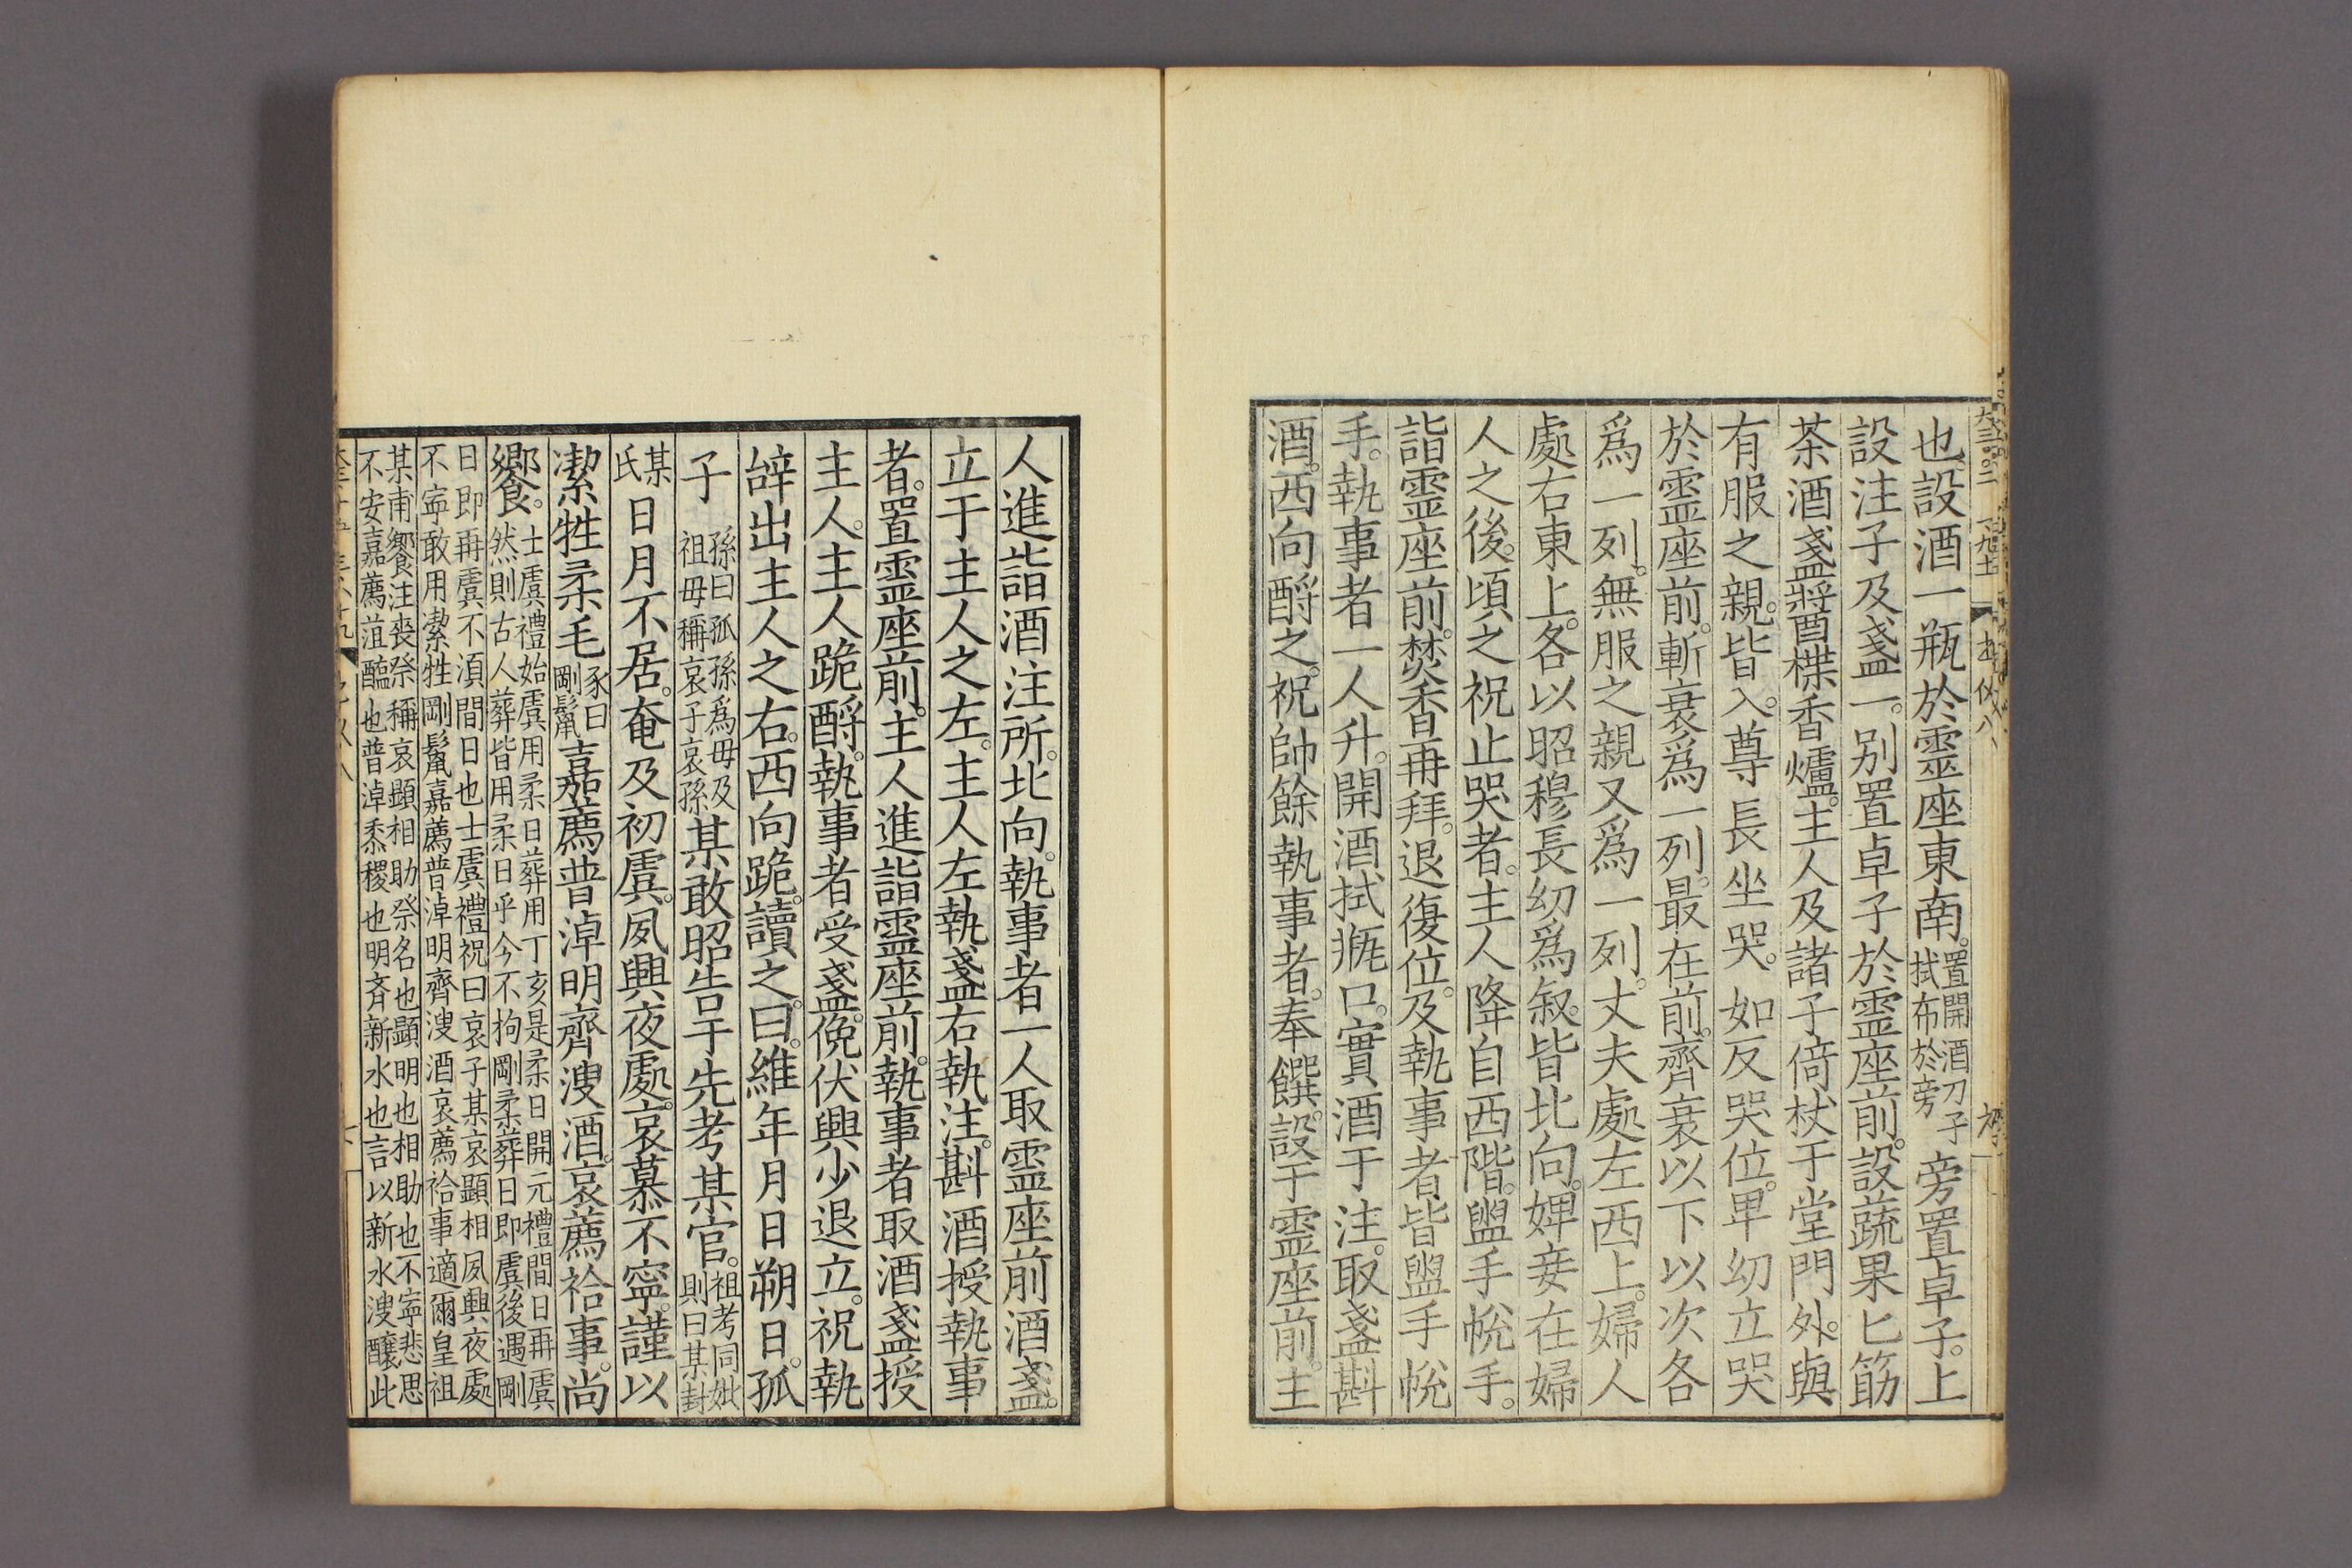 也。設酒一瓶於靈座東南。置開酒刀子拭布於旁旁置卓子。上
設注子及盞一。别置卓子於靈座前。設蔬果匕筯
茶酒盞醬楪香爐。主人及諸子倚杖于堂門外。與
有服之親。皆入。尊長坐哭。如反哭位。卑幼立哭
於靈座前。斬衰爲一列。最在前。齊衰以下以次各
爲一列。無服之親又爲一列。丈夫處左西上。婦人
處右東上。各以昭穆長幼爲叙。皆北向。婢妾在婦
人之後。頃之祝止哭者。主人降自西階。盥手帨手。
詣靈座前。焚香再拜。退復位。及執事者皆盥手帨
手。執事者一人升。開酒拭瓶口。實酒于注。取盞斟
酒。西向酹之。祝帥餘執事者。奉饌。設于靈座前。主
人進詣酒注所。北向。執事者一人取靈座前酒盞。
立于主人之左。主人左執盞右執注。斟酒授執事
者。置靈座前。主人進詣靈座前。執事者取酒盞授
主人。主人跪酹。執事者受盞。俛伏興少退立。祝執
辝出主人之右。西向跪。讀之。曰。維年月日朔日。孤
子孫曰孤孫爲母及祖母稱哀子哀孫某敢昭告于先考某官。祖考同妣則曰某封
某氏日月不居。奄及初虞。夙興夜處。哀慕不寧。謹以
潔牲柔毛豕曰剛鬛嘉薦普淖明齊溲酒。哀薦祫事。尚
饗。士虞禮始虞用柔日葬用丁亥是柔日開元禮間日再虞
然則古人葬皆用柔日乎今不拘剛柔葬日即虞後遇剛
日即再虞不湏間日也士虞禮祝曰哀子某哀顯相夙興夜處
不寧敢用潔牲剛鬛嘉薦普淖明齊溲酒哀薦祫事適爾皇祖
某甫饗注喪祭稱哀顯相助祭名也顯明也相助也不寧悲思
不安嘉薦菹醢也普淖黍稷也明斉新水也言以新水溲釀此